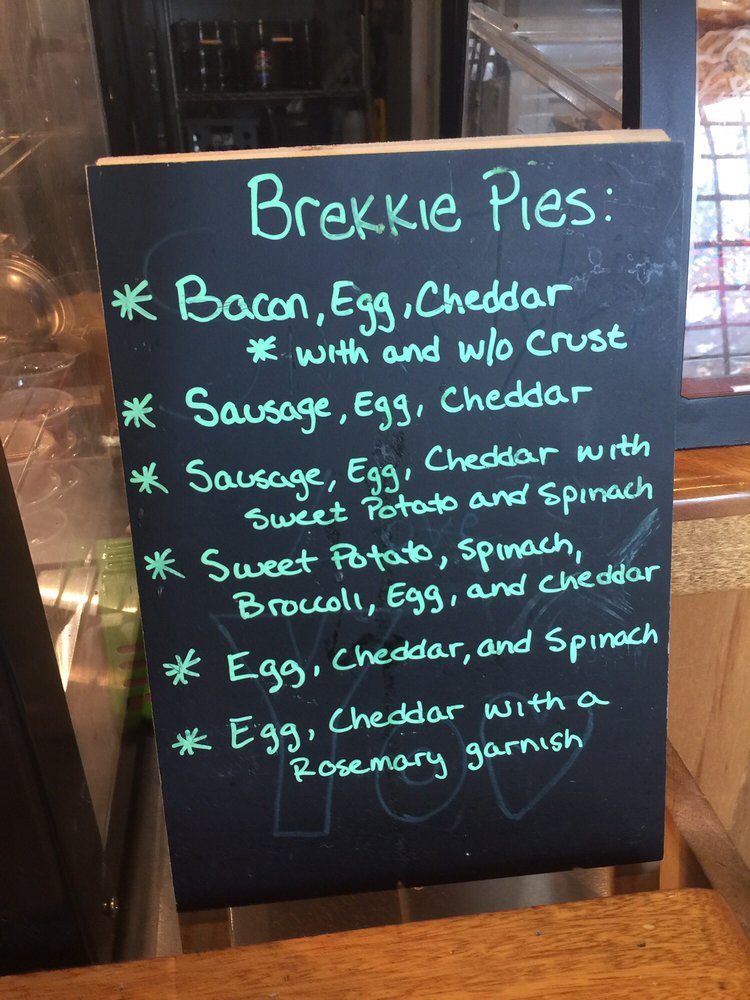 Brekkie Pies:
* Bacon, Egg, Cheddar
* with and w/o Crust
* Sausage, Egg, Cheddar
* Sausage, Egg, Cheddar with
Sweet Potato and Spinach
* Sweet Potato, Spinach,
Broccoli, Egg, and Cheddar
* Egg, Cheddar, and Spinach
* Egg, Cheddar with a
Rosemary garnish
You